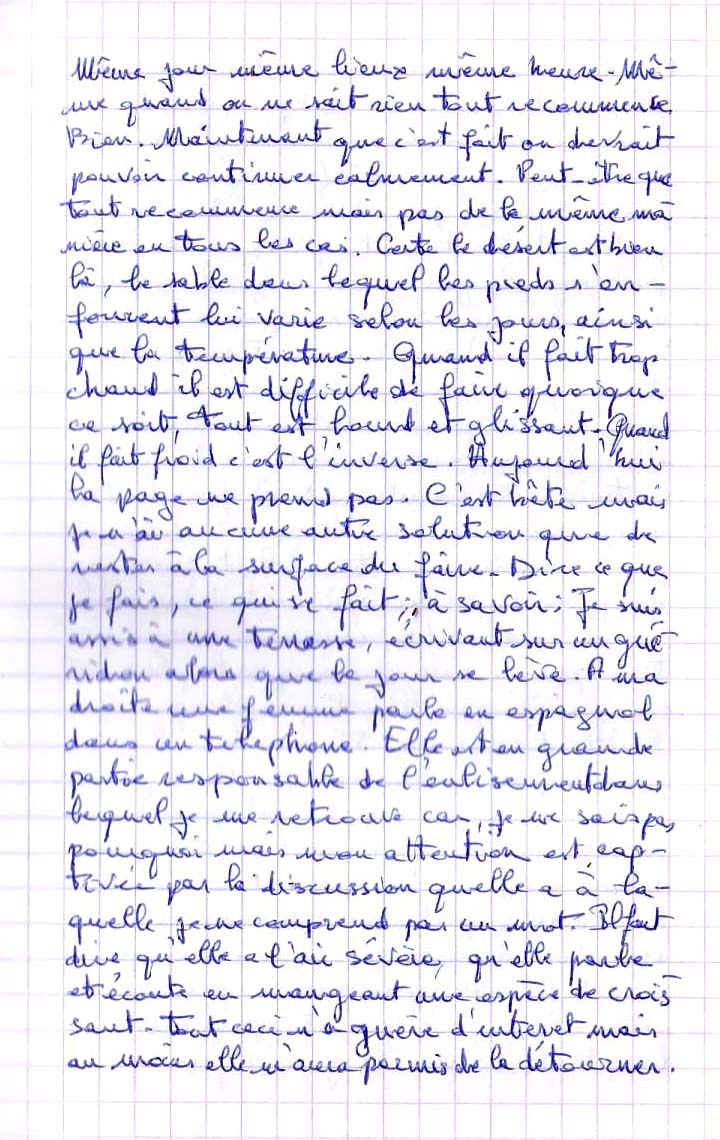 Même jour même lieux même heure. Mê-
me quand on ne sait rien tout recommence.
Bien. Maintenant que c'est fait on devrait
pouvoir continuer calmement. Peut-être que
tout recommence mais pas de la même ma
nière en tous les cas. Certe le désert est bien
là, le sable dans lequel les pieds s'en-
fouient lui varie selon les jours, ainsi
que la température. Quand il fait trop
chaud il est difficile de faire quoique
ce soit, tout est lourd et glissant. Quand
il fait froid c'est l'inverse. Aujourd'hui
la page ne prend pas. C'est bête mais
je n'ai aucune autre solution que de
rester à la surface du faire. Dire ce que
je fais, ce qui se fait; à savoir: Je suis
assis à une terrasse, écrivant sur un gué
ridon alors que le jour se lève. A ma
droite une femme parle en espagnol
dans un telephone. Elle est en grande
partie responsable de l'enlisement dans
lequel je me retrouve car, je ne sais pas
pourquoi mais mon attention est cap-
tivée par la discussion quelle a à la-
quelle je ne comprend pas un mot. Il faut
dire qu'elle a l'air sévère, qu'elle parle
et écoute en mangeant une espèce de crois
sant. Tout ceci n'a guère d'interet mais
au moins elle m'aura permis de la détourner.